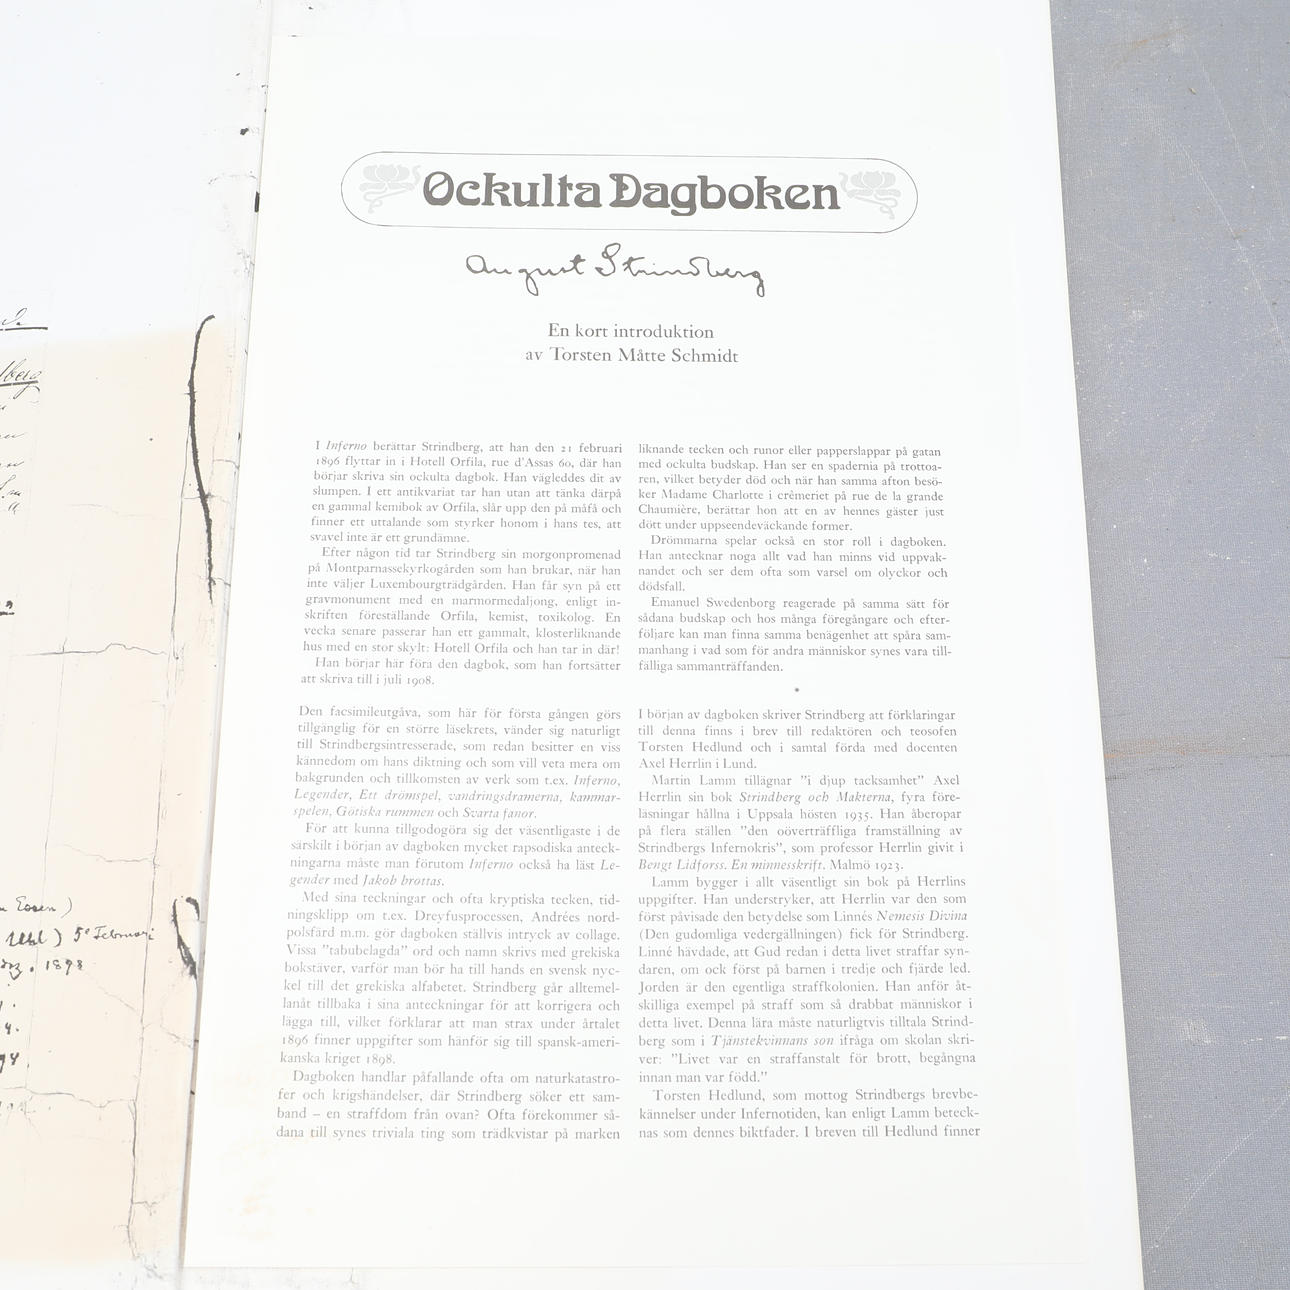 Ockulta Dagboken
August Strindberg
En kort introduktion
av Torsten Måtte Schmidt
I Inferno berättar Strindberg, att han den 21 februari
1896 flyttar in i Hotell Orfila, rue d'Assas 60, där han
börjar skriva sin ockulta dagbok. Han vägleddes dit av
slumpen. I ett antikvariat tar han utan att tänka därpå
en gammal kemibok av Orfila, slår upp den på måfå och
finner ett uttalande som styrker honom i hans tes, att
svavel inte är ett grundämne.
Efter någon tid tar Strindberg sin morgonpromenad
på Montparnassekyrkogården som han brukar, när han
inte väljer Luxembourgträdgården. Han får syn på ett
gravmonument med en marmormedaljong, enligt in-
skriften föreställande Orfila, kemist, toxikolog. En
vecka senare passerar han ett gammalt, klosterliknande
hus med en stor skylt: Hotell Orfila och han tar in där!
Han börjar här föra den dagbok, som han fortsätter
att skriva till i juli 1908.
Den facsimileutgåva, som här för första gången görs
tillgänglig för en större läsekrets, vänder sig naturligt
till Strindbergsintresserade, som redan besitter en viss
kännedom om hans diktning och som vill veta mera om
bakgrunden och tillkomsten av verk som t.ex. Inferno,
Legender, Ett drömspel, vandringsdramerna, kammar-
spelen, Götiska rummen och Svarta fanor.
För att kunna tillgodogöra sig det väsentligaste i de
särskilt i början av dagboken mycket rapsodiska anteck-
ningarna måste man förutom Inferno också ha läst Le-
gender med Jakob brottas.
Med sina teckningar och ofta kryptiska tecken, tid-
ningsklipp om t.ex. Dreyfusprocessen, Andrées nord-
polsfärd m.m. gör dagboken ställvis intryck av collage.
Vissa ”tabubelagda” ord och namn skrivs med grekiska
bokstäver, varför man bör ha till hands en svensk nyc-
kel till det grekiska alfabetet. Strindberg går alltemel-
lanåt tillbaka i sina anteckningar för att korrigera och
lägga till, vilket förklarar att man strax under årtalet
1896 finner uppgifter som hänför sig till spansk-ameri-
kanska kriget 1898.
Dagboken handlar påfallande ofta om naturkatastro-
fer och krigshändelser, där Strindberg söker ett sam-
band – en straffdom från ovan? Ofta förekommer så-
dana till synes triviala ting som trädkvistar på marken
liknande tecken och runor eller papperslappar på gatan
med ockulta budskap. Han ser en spadernia på trottoa-
ren, vilket betyder död och när han samma afton besö-
ker Madame Charlotte i crêmeriet på rue de la grande
Chaumière, berättar hon att en av hennes gäster just
dött under uppseendeväckande former.
Drömmarna spelar också en stor roll i dagboken.
Han antecknar noga allt vad han minns vid uppvak-
nandet och ser dem ofta som varsel om olyckor och
dödsfall.
Emanuel Swedenborg reagerade på samma sätt för
sådana budskap och hos många föregångare och efter-
följare kan man finna samma benägenhet att spåra sam-
manhang i vad som för andra människor synes vara till-
fälliga sammanträffanden.
*
I början av dagboken skriver Strindberg att förklaringar
till denna finns i brev till redaktören och teosofen
Torsten Hedlund och i samtal förda med docenten
Axel Herrlin i Lund.
Martin Lamm tillägnar ”i djup tacksamhet” Axel
Herrlin sin bok Strindberg och Makterna, fyra före-
läsningar hållna i Uppsala hösten 1935. Han åberopar
på flera ställen ”den oöverträffliga framställning av
Strindbergs Infernokris”, som professor Herrlin givit i
Bengt Lidforss. En minnesskrift. Malmö 1923.
Lamm bygger i allt väsentligt sin bok på Herrlins
uppgifter. Han understryker, att Herrlin var den som
först påvisade den betydelse som Linnés Nemesis Divina
(Den gudomliga vedergällningen) fick för Strindberg.
Linné hävdade, att Gud redan i detta livet straffar syn-
daren, om ock först på barnen i tredje och fjärde led.
Jorden är den egentliga straffkolonien. Han anför åt-
skilliga exempel på straff som så drabbat människor i
detta livet. Denna lära måste naturligtvis tilltala Strind-
berg som i Tjänstekvinnans son ifråga om skolan skri-
ver: ”Livet var en straffanstalt för brott, begångna
innan man var född.”
Torsten Hedlund, som mottog Strindbergs brevbe-
kännelser under Infernotiden, kan enligt Lamm beteck-
nas som dennes biktfader. I breven till Hedlund finner
Essen)
) 5e Februari
1898